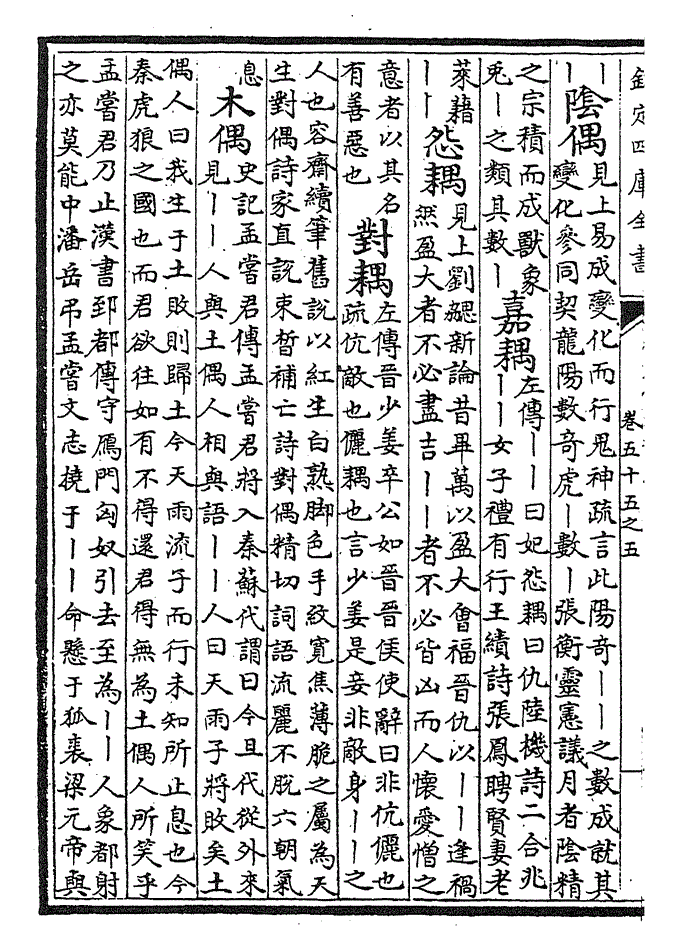 欽定四庫全書
卷五十五之五
｜
｜
陰偶
見上易成變化而行鬼神疏言此陽奇｜｜之數成就其
變化參同契龍陽數奇虎｜數｜張衡靈憲議月者陰精
之宗積而成獸象
兎｜之類其數｜
嘉耦
左傳｜｜曰妃怨耦曰仇陸機詩二合兆
｜｜女子禮有行王績詩張鳳聘賢妻老
萊藉
｜｜
怨耦
見上劉勰新論昔畢萬以盈大會福晉仇以｜｜逢禍
然盈大者不必盡吉｜｜者不必皆凶而人懷愛憎之
意者以其名
有善惡也
對耦
左傳晉少姜卒公如晉晉侯使辭曰非伉儷也
疏伉敵也儷耦也言少姜是妾非敵身｜｜之
人也容齋續筆舊說以紅生白熟脚色手紋寬焦薄脆之屬為天
生對偶詩家直說束晳補亡詩對偶精切詞語流麗不脫六朝氣
息
木偶
史記孟嘗君傳孟嘗君將入秦蘇代謂曰今旦代從外來
見｜｜人與土偶人相與語｜｜人曰天雨子將敗矣土
偶人曰我生于土敗則歸土今天雨流子而行未知所止息也今
秦虎狼之國也而君欲往如有不得還君得無為土偶人所笑乎
孟嘗君乃止漢書郅都傳守鴈門匈奴引去至為｜｜人象都射
之亦莫能中潘岳弔孟嘗文志撓于｜｜命懸于狐裘梁元帝與